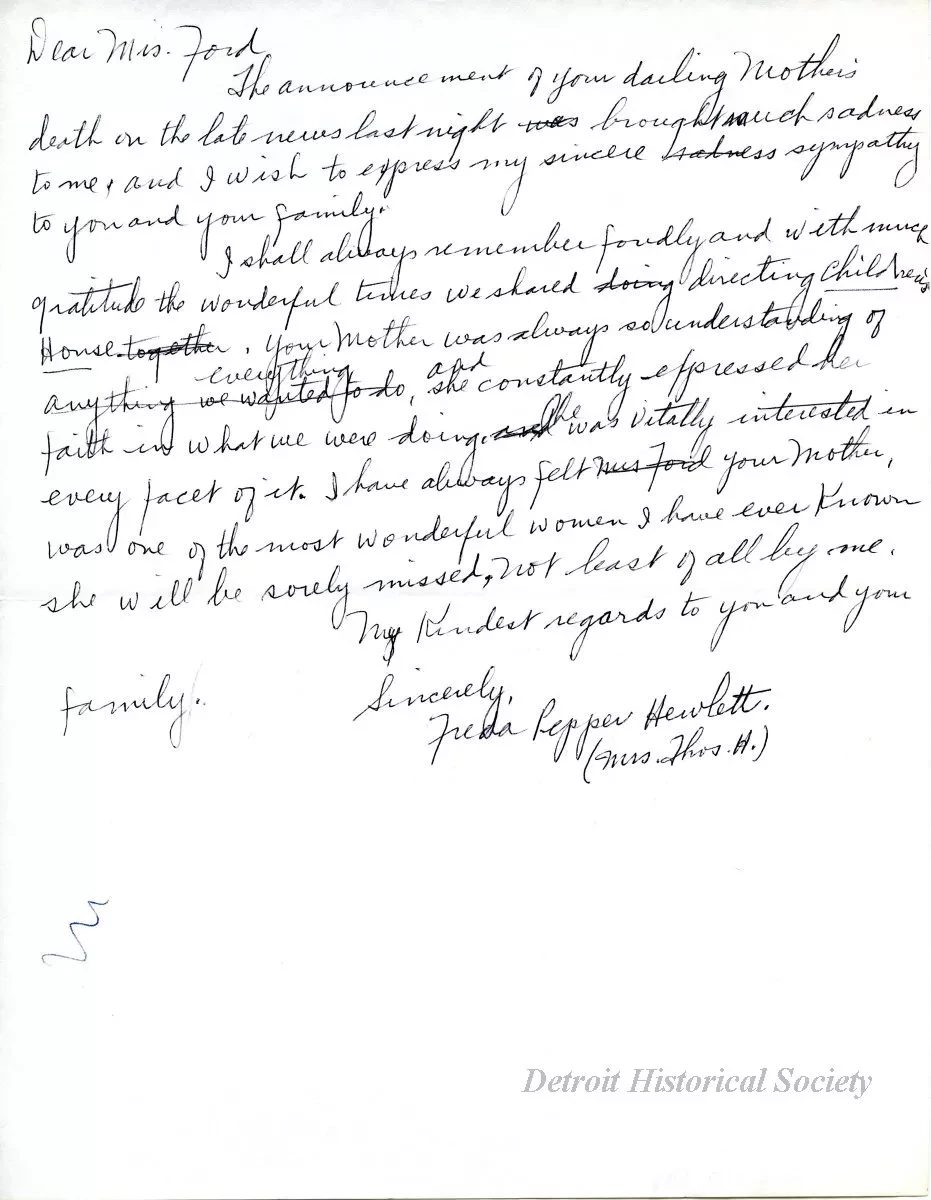 Dear Mrs. Ford
The announcement of your darling Mother's
death on the late news last night was brought much sadness
to me, and I wish to express my sincere sadness sympathy
to you and your family.
I shall always remember fondly and with much
gratitude the wonderful times we shared doing directing Children's
House together. Your Mother was always so understanding of
everything and
anything we wanted to do, she constantly expressed her
faith in what we were doing. and She was vitally interested in
every facet of it. I have always felt Mrs Ford your Mother,
was one of the most wonderful women I have ever known
she will be sorely missed, not least of all by me.
My Kindest regards to you and your
family.
Sincerely,
Freda Pepper Hewlett.
(Mrs. Thos. H.)
Detroit Historical Society